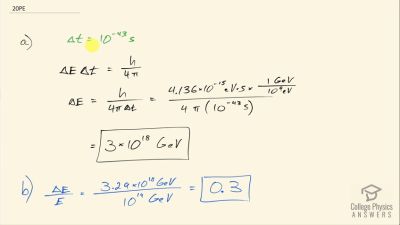 20PE
a) Δt = 10⁻⁴³ s
ΔE Δt = h / 4π
ΔE = h / 4πΔt = 4.136×10⁻¹⁵ eV·s × 1 GeV / 10⁹ eV / 4π (10⁻⁴³ s)
= 3×10¹⁸ GeV
b) ΔE / E = 3.29×10¹⁸ GeV / 10¹⁹ GeV = 0.3
College Physics
ANSWERS